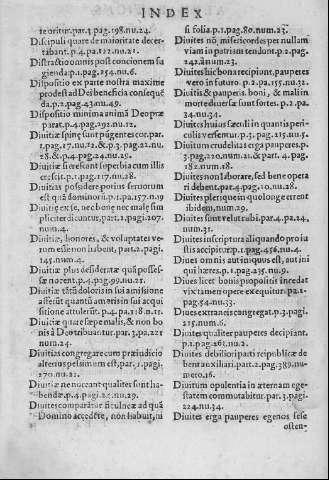 INDEX
te oritur. par. 3. pag. 198. nu. 24.
Discipuli quare de maioritate decer-
tabant. p. 4. pa. 122. nu. 21.
Distractio omnis post concionem fa
gienda. p. 1. pag. 254. nu. 6.
Dispositio ex parte nostra maxime
prodest ad Dei beneficia consequē
da. p. 2. pag. 43. nu. 49.
Dispositio minima animā Deo præ
parat. p. 4. pag. 292. nu. 12.
Diuitiæ spinę sunt pūgentes cor. par.
1. pag. 17. nu. 21. & p. 3. pag. 22. nu.
28. & p. 4. pag. 24. nu. 29.
Diuitiæ si crescant superbia cum illis
crescit. p. 1. pag. 117. nu. 28.
Diuitias possidere potius seruorum
est quā dominorū. p. 1. pa. 157. n. 19
Diuitię ex se, nec bonę nec malę sim
pliciter dicuntur. part. 2. pag. 207.
num. 4.
Diuitiæ, honores, & voluptates ve-
rum esse non habent. part. 2. pag.
145. num. 4.
Diuitiæ plus desideratæ quā posses-
sæ nocent. p. 4. pag. 99. nu. 21.
Diuitiæ tātū doloris in sui amissione
afferūt quantū amoris in sui acqui
sitione attulerūt. p. 4. pa. 118. n. 11.
Diuitiæ quare sæpe malis, & non bo
nis à Deo tribuantur. par. 3. pa. 221
num. 24.
Diuitias congregare cum præiudicio
alterius pessimum est. par. 1. pagi.
270. nu. 21.
Diuitiæ ne noceant qualiter sunt ha-
bendæ. p. 4. pag. 24. nu. 29.
Diuites comparātur fitulneæ ad quā
Domino accedēte, non habuit, ni
si folia. p. 1. pag. 80. num. 23.
Diuites nō misericordes per nullam
viam in patriam tendont. p. 2. pag.
242. à num. 23.
Diuites hic bona recipiunt, pauperes
vero in futuro. p. 2. pa. 155. nu. 31.
Diuitis & pauperis, boni, & mali in
morte diuersæ sunt sortes. p. 2. pa.
34. nu. 34.
Diuites huius sæculi in quantis peri-
culis versentur. p. 3. pag. 215. nu. 5.
Diuitum crudelitas erga pauperes. p.
3. pag. 220. num. 21. & part. 4. pag.
182. num. 18.
Diuites non laborare, sed bene opera
ri debent. par. 4. pag. 10. nu. 28.
Diuites plerique in quo longe errent
ibidem. num. 29.
Diuites sunt velut rubi. par. 4. pa. 24,
num. 31.
Diuites in scriptura aliquando pro iu
stis accipiūtur. p. 1. pag. 456. nu. 4.
Diues omnis aut iniquus est, aut ini
qui hæres. p. 1. pag. 235. nu. 9.
Diues licet bonis propositis incedat
vix tamen opere exequitur. pa. 1-
pag. 54. nu. 33.
Diues extraneis congregat. p. 3. pagi.
215. num. 6.
Diuites qualiter pauperes decipiant.
p. 1. pag. 261. nu. 2.
Diuites debiliori parti reipublicæ de
bent auxiliari. part. 2. pag. 389. nu-
mero. 16.
Diuitum opulentia in æternam ege-
statem commutabitur. par. 3. pagi.
224. nu. 34.
Diuites erga pauperes egenos sese
osten-